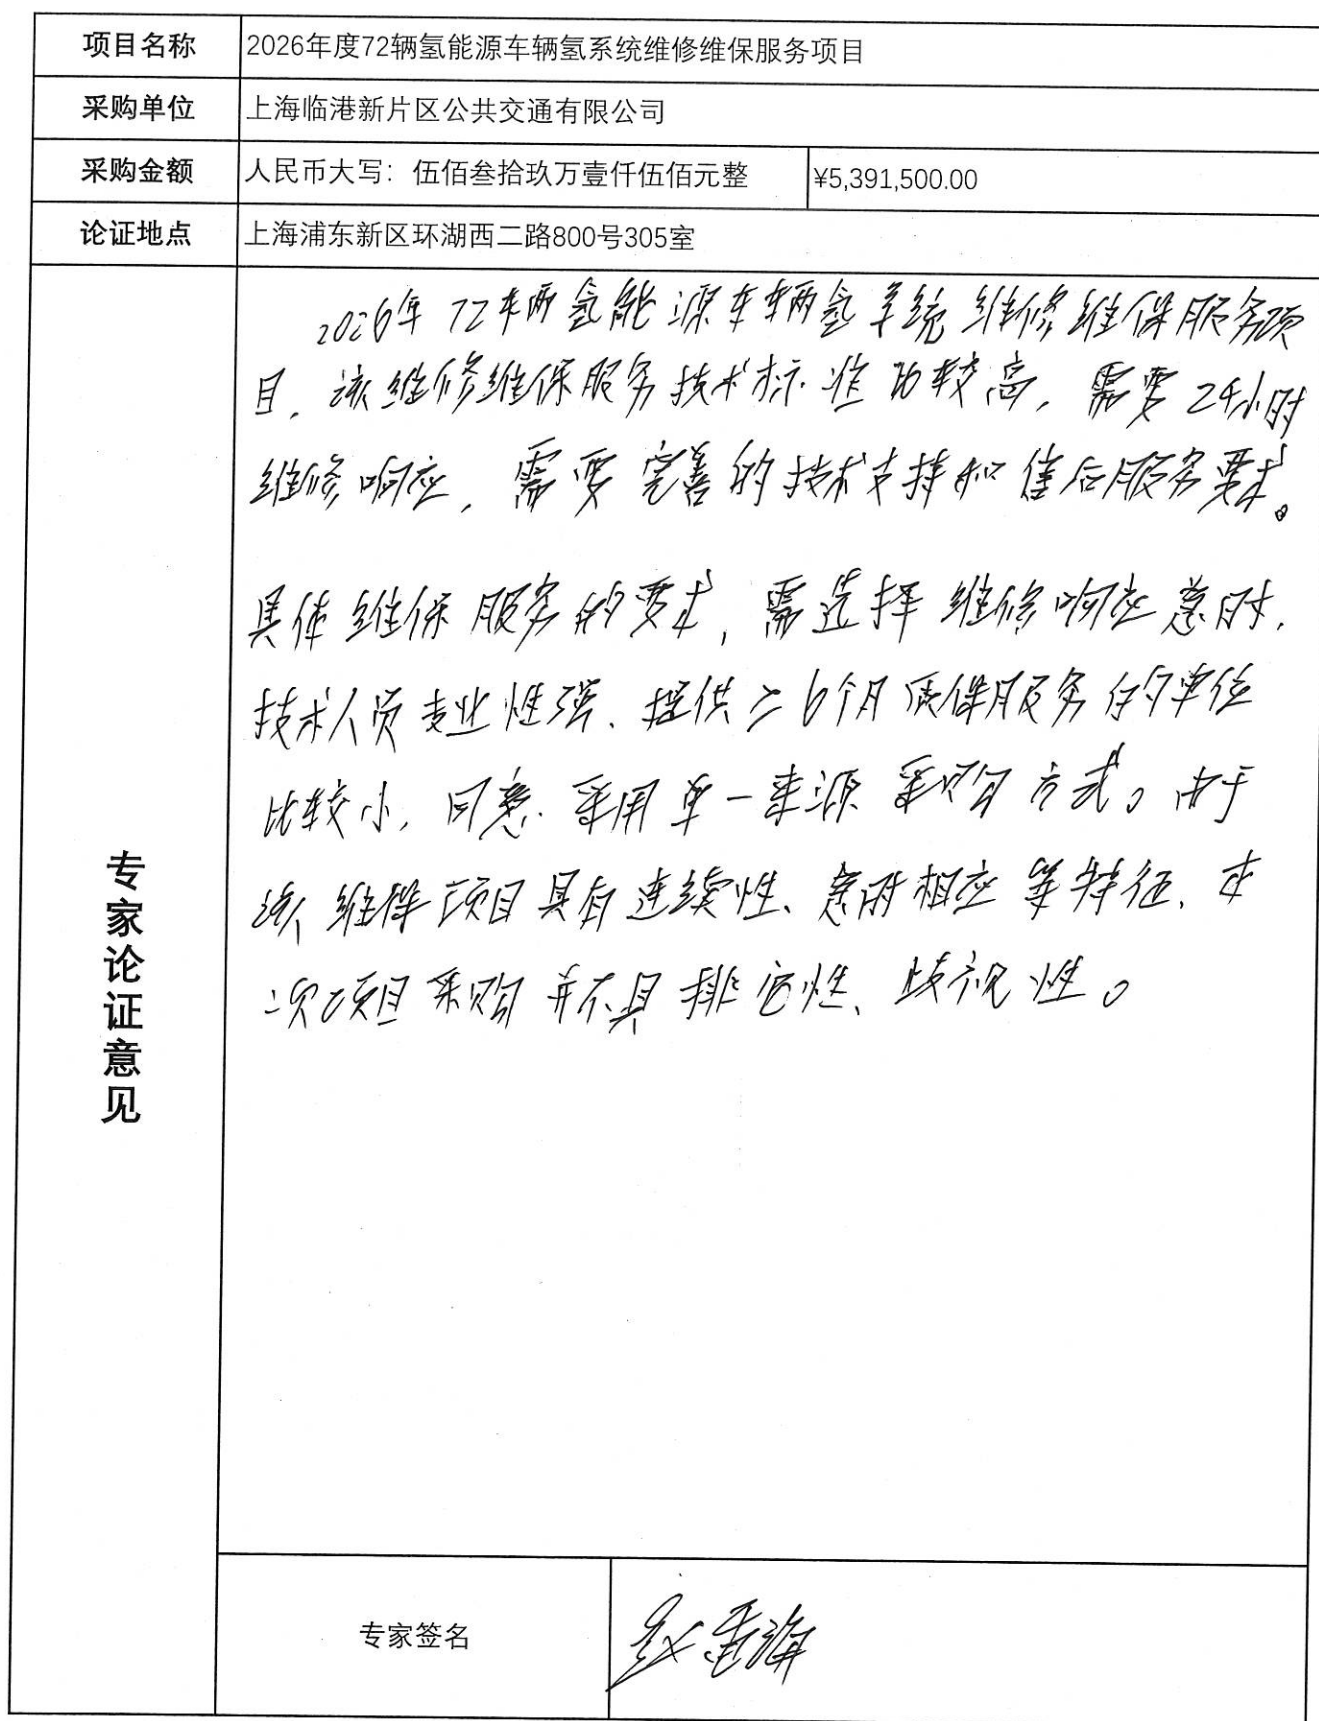 项目名称 2026年度72辆氢能源车辆氢系统维修维保服务项目
采购单位 上海临港新片区公共交通有限公司
采购金额 人民币大写：伍佰叁拾玖万壹仟伍佰元整 ¥5,391,500.00
论证地点 上海浦东新区环湖西二路800号305室
专家论证意见
2026年72车辆氢能源车辆氢系统维修维保服务项
目，该维修维保服务技术标准比较高，需要24小时
维修响应，需要完善的技术支持和售后服务要求。
具体维保服务的要求，需选择维修响应急时、
技术人员专业性强、提供≥6个月质保服务的单位
比较小，同意采用单一来源采购方式。由于
该维保项目具有连续性、急时相应等特征，本
次项目采购并不具排它性、歧视性。
专家签名